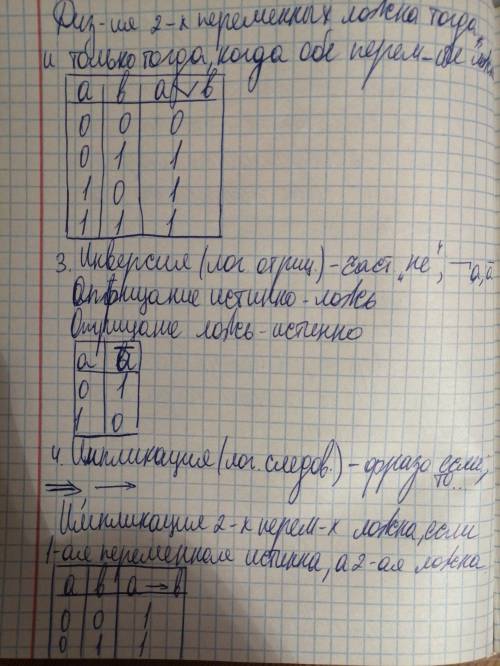 Диз-ия 2-х переменных ложна тогда
и только тогда, когда обе перем-ые лож
a b a ∨ b
0 0 0
0 1 1
1 0 1
1 1 1
3. Инверсия (лог. отриц.) - част. „не", ¬a, ā
Отрицание истинно - ложь
Отрицание ложь - истинно
a ā
0 1
1 0
4. Импликация (лог. следов.) - фраза если,
⇒ → то...
Импликация 2-х перем-х ложна, если
1-ая переменная истинна, а 2-ая ложна
a b a → b
0 0 1
0 1 1